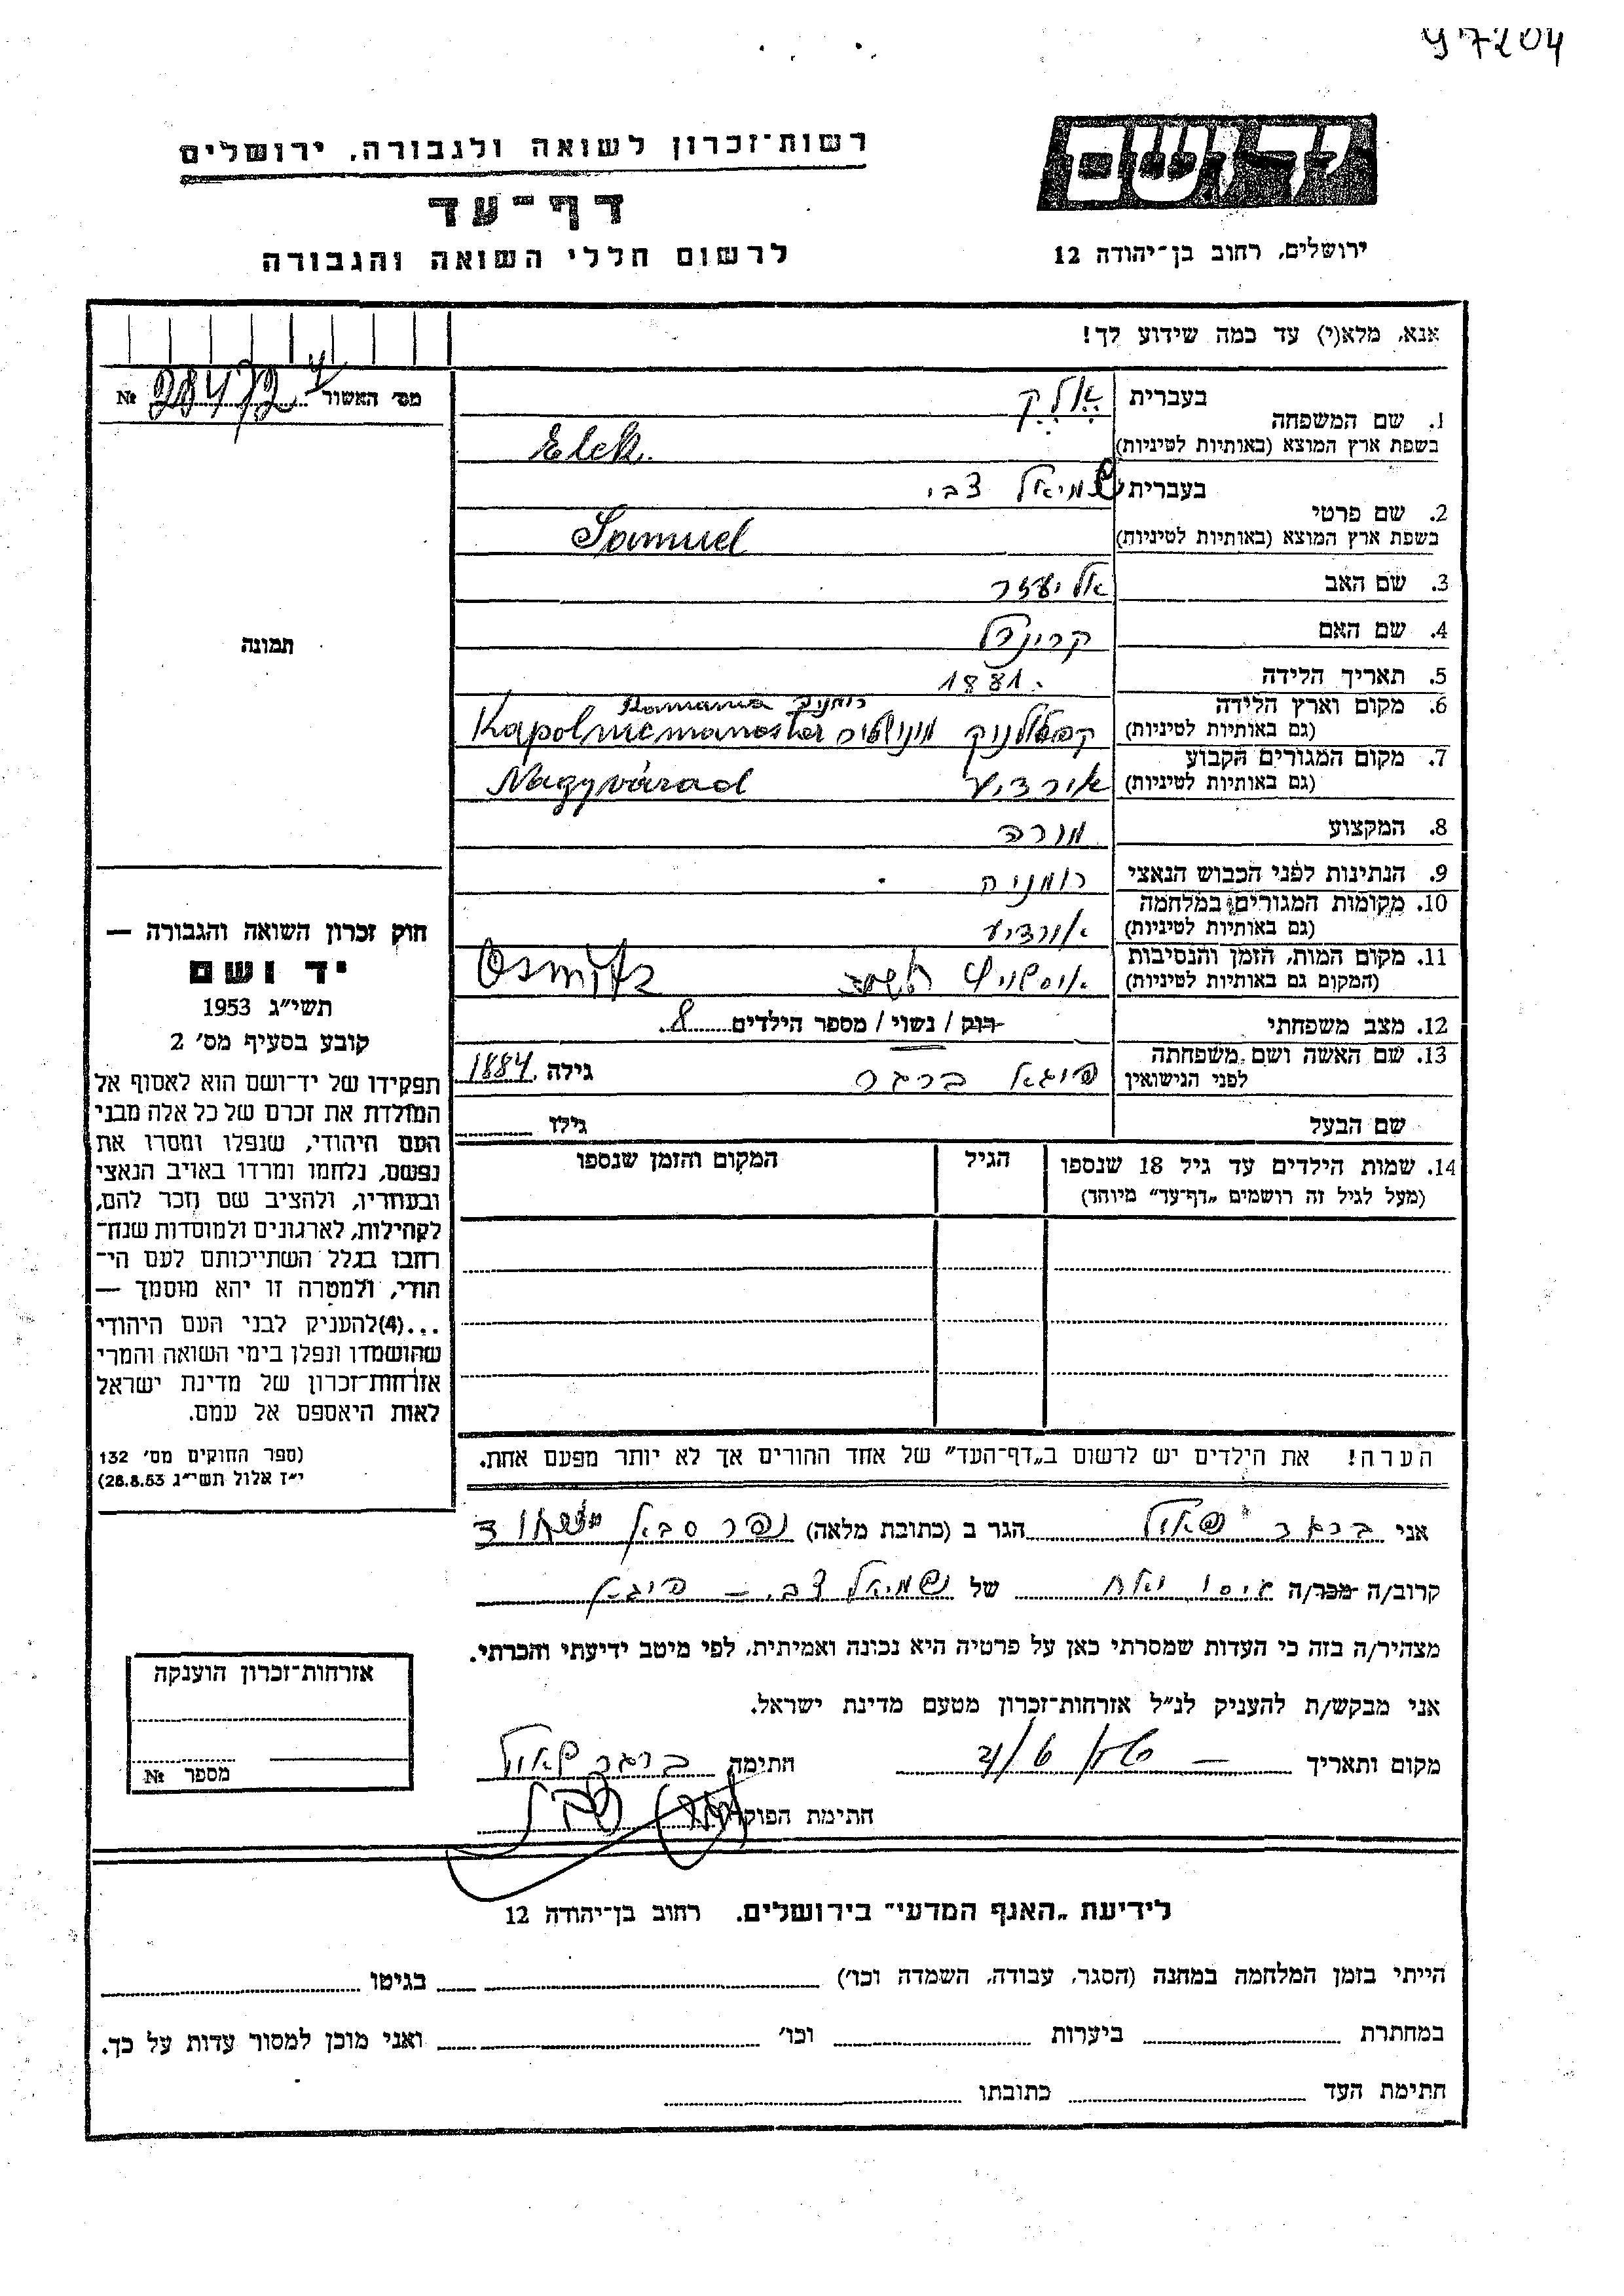 97204
יד ושם
רשות־זכרון לשואה ולגבורה, ירושלים
דף־עד
לרשום חללי השואה והגבורה
ירושלים, רחוב בן־יהודה 12
אנא, מלא(י) עד כמה שידוע לך!
מס' האשור № 28472
1. שם המשפחה
בעברית אלק
בשפת ארץ המוצא (באותיות לטיניות) Elek
2. שם פרטי
בעברית שמיאל צבי
בשפת ארץ המוצא (באותיות לטיניות) Samuel
3. שם האב אליעזר
4. שם האם קריינדל
5. תאריך הלידה 1881
6. מקום וארץ הלידה רומניה Romania
(גם באותיות לטיניות) Kapolnicmanoster
7. מקום המגורים הקבוע
(גם באותיות לטיניות) אורדיע Nagyvárad
8. המקצוע מורה
9. הנתינות לפני הכבוש הנאצי רומניה
10. מקומות המגורים במלחמה
(גם באותיות לטיניות) אורדיע
11. מקום המות, הזמן והנסיבות
(המקום גם באותיות לטיניות) אוסשויץ תש"ד Osmitz
12. מצב משפחתי רווק / נשוי / מספר הילדים 8
13. שם האשה ושם משפחתה
לפני הנישואין פיגא ברגר גילה 1884
שם הבעל גילו
14. שמות הילדים עד גיל 18 שנספו הגיל המקום והזמן שנספו
(מעל לגיל זה רושמים „דף־עד" מיוחד)
הערה! את הילדים יש לרשום ב„דף־העד" של אחד ההורים אך לא יותר מפעם אחת.
תמונה
חוק זכרון השואה והגבורה —
יד ושם
תשי"ג 1953
קובע בסעיף מס' 2
תפקידו של יד־ושם הוא לאסוף אל
המולדת את זכרם של כל אלה מבני
העם היהודי, שנפלו ומסרו את
נפשם, נלחמו ומרדו באויב הנאצי
ובעוזריו, ולהציב שם וזכר להם,
לקהילות, לארגונים ולמוסדות שנח־
רבו בגלל השתייכותם לעם הי־
הודי, ולמטרה זו יהא מוסמך —
...(4)להעניק לבני העם היהודי
שהושמדו ונפלו בימי השואה והמרי
אזרחות־זכרון של מדינת ישראל
לאות היאספם אל עמם.
(ספר החוקים מס' 132
י"ז אלול תשי"ג 28.8.53)
אני ברגר שאול הגר ב (כתובת מלאה) כפר סבא
קרוב/ה מכר/ה של שמיאל צבי — פיגא
מצהיר/ה בזה כי העדות שמסרתי כאן על פרטיה היא נכונה ואמיתית, לפי מיטב ידיעתי והכרתי.
אני מבקש/ת להעניק לנ"ל אזרחות־זכרון מטעם מדינת ישראל.
מקום ותאריך חתימה ברגר שאול
חתימת הפוקד
אזרחות־זכרון הוענקה
מספר №
לידיעת „האגף המדעי" בירושלים. רחוב בן־יהודה 12
הייתי בזמן המלחמה במחנה (הסגר, עבודה, השמדה וכו') בגיטו
במחתרת ביערות וכו' ואני מוכן למסור עדות על כך.
חתימת העד כתובתו